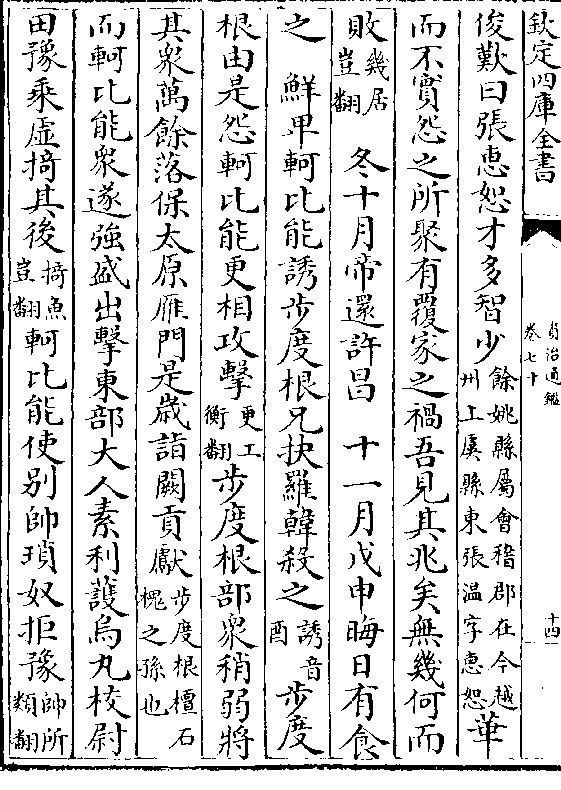 欽定四庫全書
資治通鑑
卷七十
十四
俊歎曰張惠恕才多智少餘姚縣屬會稽郡在今越州上虞縣東張温字惠恕華
而不實怨之所聚有覆家之禍吾見其兆矣無幾何而
敗幾居豈翻 冬十月帝還許昌 十一月戊申晦日有食
之 鮮卑軻比能誘步度根兄扶羅韓殺之誘音酉步度
根由是怨軻比能更相攻擊更工衡翻步度根部衆稍弱將
其衆萬餘落保太原雁門是歲詣闕貢獻步度根檀石槐之孫也
而軻比能衆遂強盛出擊東部大人素利護烏丸校尉
田豫乘虚掎其後掎魚豈翻軻比能使别帥瑣奴拒豫帥所類翻